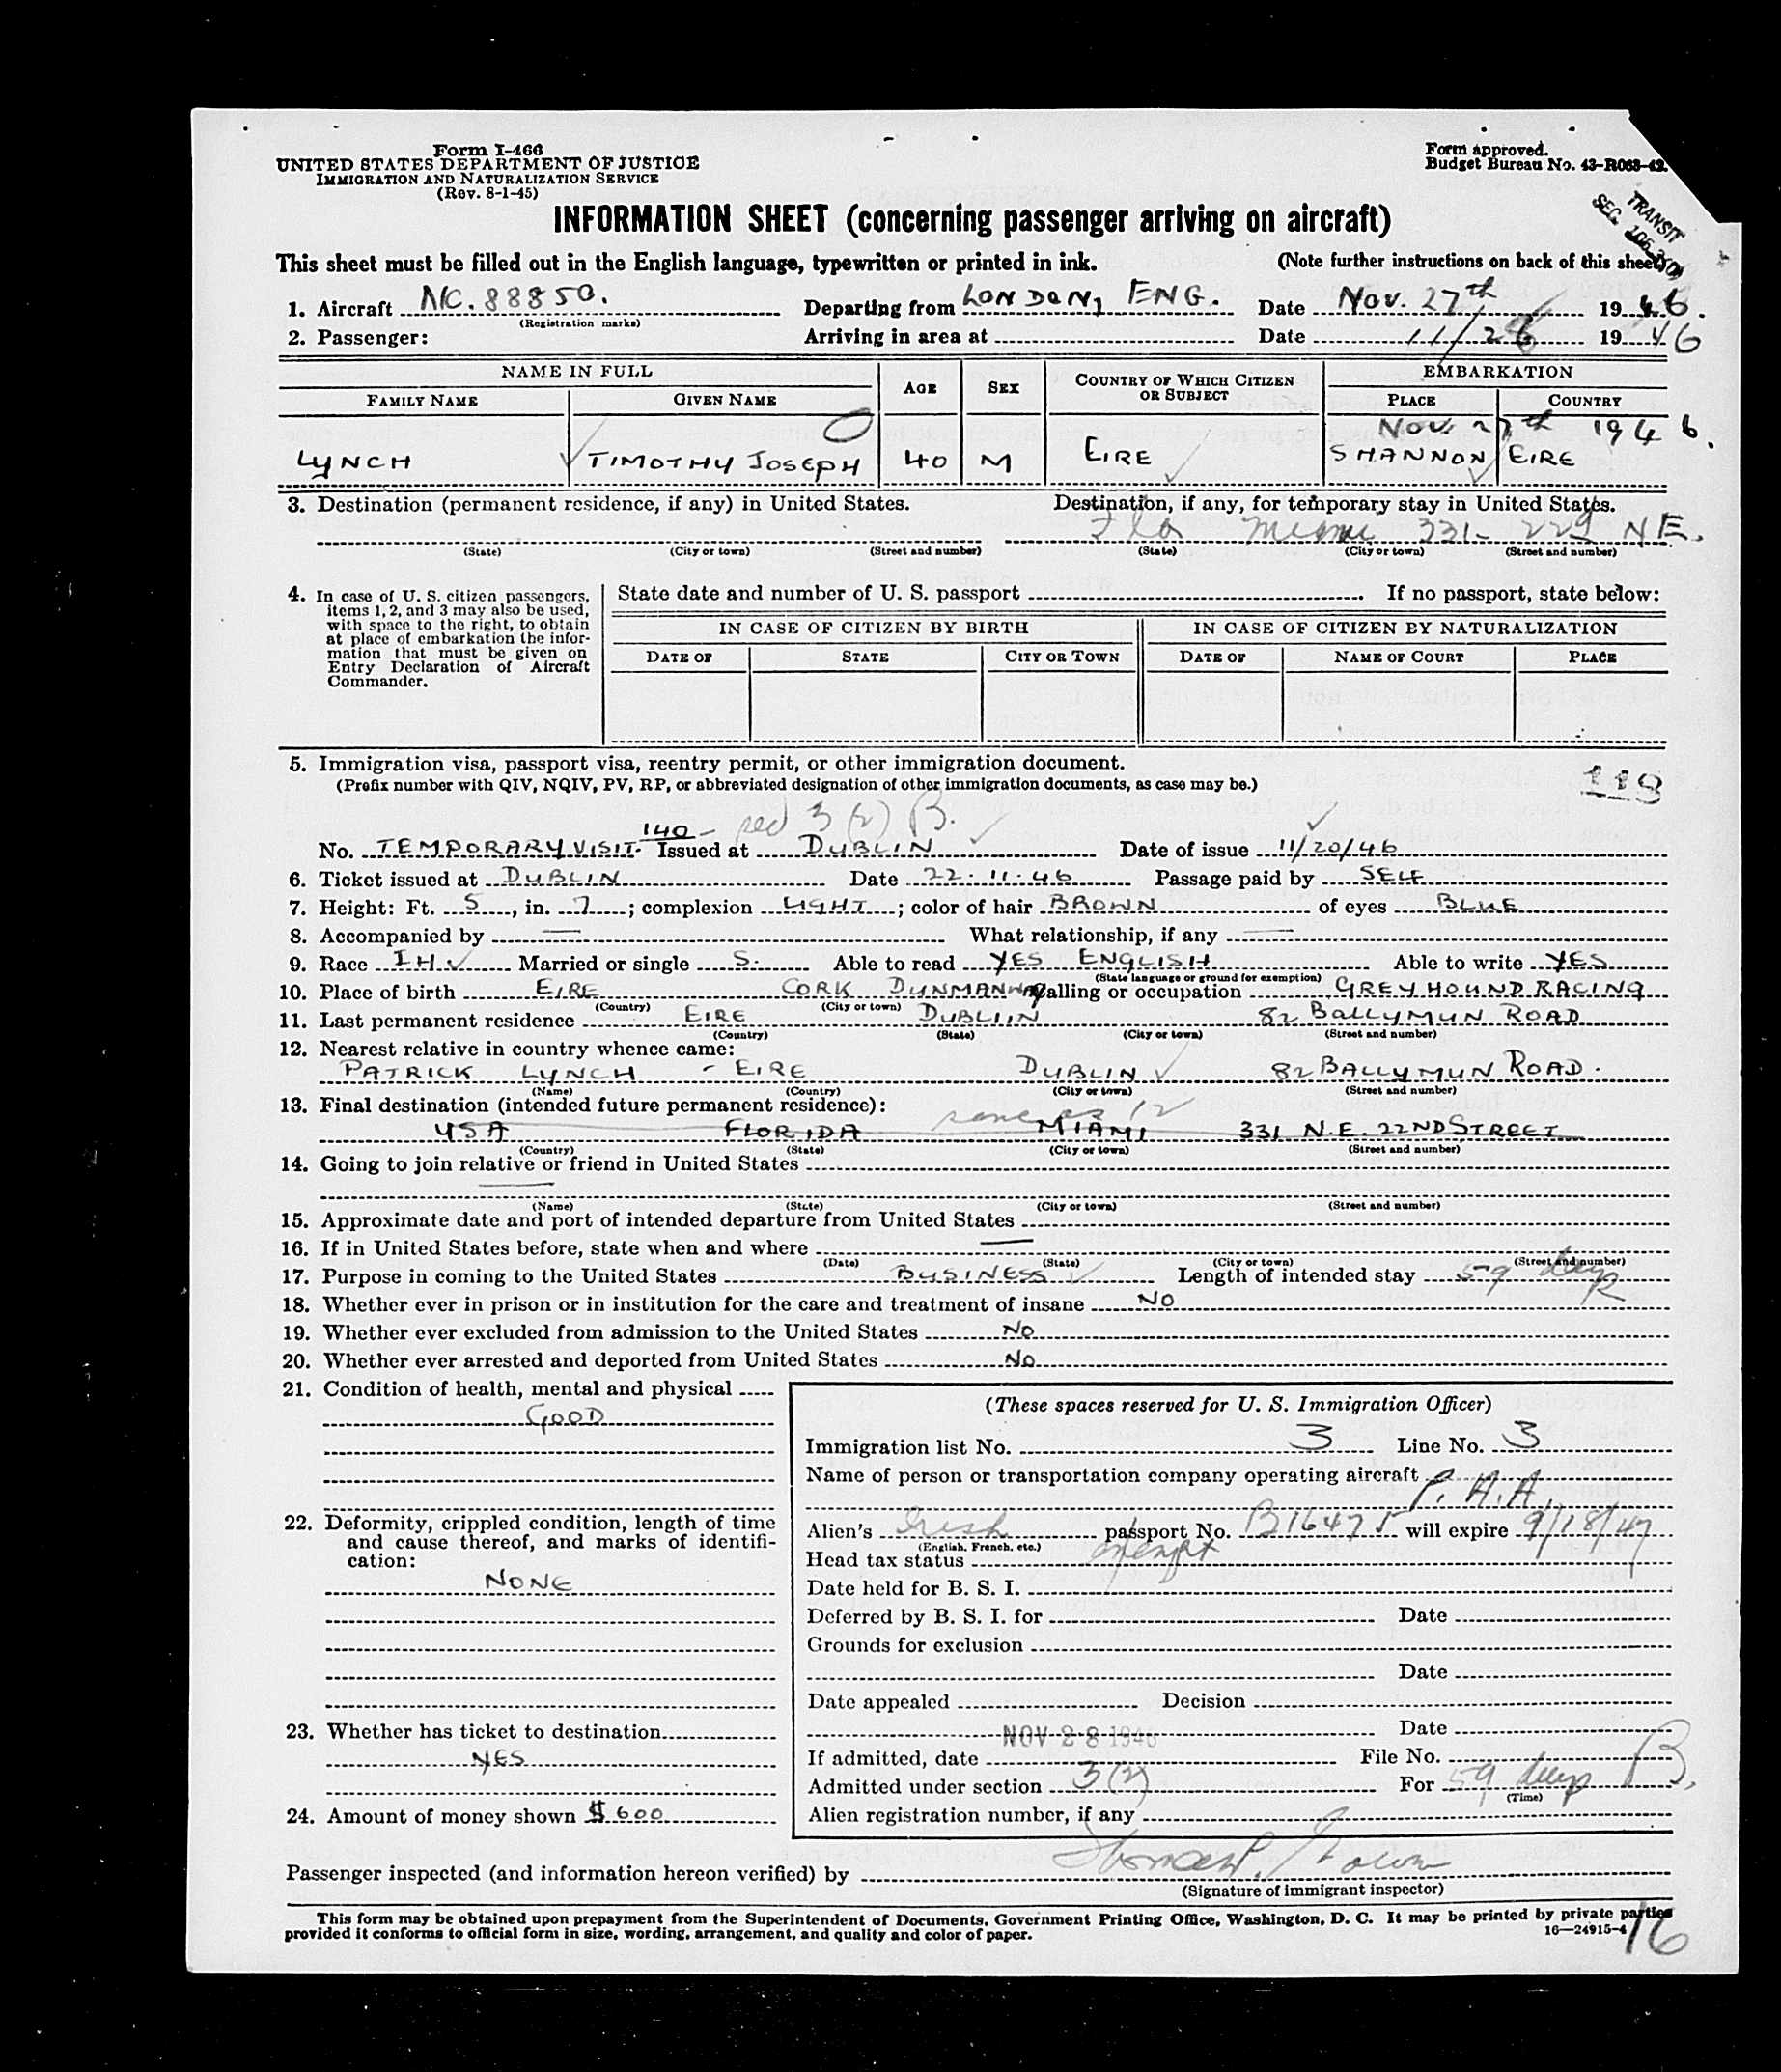 Form I-466
UNITED STATES DEPARTMENT OF JUSTICE
IMMIGRATION AND NATURALIZATION SERVICE
(Rev. 8-1-45)
Form approved.
Budget Bureau No. 43-R063-42.
TRANSIT
SEC.
INFORMATION SHEET (concerning passenger arriving on aircraft)
This sheet must be filled out in the English language, typewritten or printed in ink. (Note further instructions on back of this sheet)
1. Aircraft NC. 88850. Departing from LONDON, ENG. Date Nov. 27th 1946.
(Registration marks)
2. Passenger: Arriving in area at Date 11/28 1946
NAME IN FULL AGE SEX COUNTRY OF WHICH CITIZEN OR SUBJECT EMBARKATION
FAMILY NAME GIVEN NAME PLACE COUNTRY
Nov. 27th 1946.
LYNCH TIMOTHY JOSEPH 40 M EIRE SHANNON EIRE
3. Destination (permanent residence, if any) in United States. Destination, if any, for temporary stay in United States.
Fla Miami 331- 22d N E.
(State) (City or town) (Street and number) (State) (City or town) (Street and number)
4. In case of U. S. citizen passengers, items 1, 2, and 3 may also be used, with space to the right, to obtain at place of embarkation the information that must be given on Entry Declaration of Aircraft Commander.
State date and number of U. S. passport . If no passport, state below:
IN CASE OF CITIZEN BY BIRTH IN CASE OF CITIZEN BY NATURALIZATION
DATE OF STATE CITY OR TOWN DATE OF NAME OF COURT PLACE
5. Immigration visa, passport visa, reentry permit, or other immigration document.
(Prefix number with QIV, NQIV, PV, RP, or abbreviated designation of other immigration documents, as case may be.)
118
140 - sec 3 (2) B.
No. TEMPORARY VISIT. Issued at DUBLIN Date of issue 11/20/46
6. Ticket issued at DUBLIN Date 22.11.46 Passage paid by SELF
7. Height: Ft. 5, in. 7; complexion LIGHT; color of hair BROWN of eyes BLUE
8. Accompanied by — What relationship, if any —
9. Race IH Married or single S. Able to read YES ENGLISH Able to write YES
(State language or ground for exemption)
10. Place of birth EIRE CORK DUNMANWAY Calling or occupation GREYHOUND RACING
(Country) (City or town)
11. Last permanent residence EIRE DUBLIIN 82 BALLYMUN ROAD
(Country) (State) (City or town) (Street and number)
12. Nearest relative in country whence came:
PATRICK LYNCH - EIRE DUBLIN 82 BALLYMUN ROAD.
(Name) (Country) (City or town) (Street and number)
13. Final destination (intended future permanent residence): same as 12
USA FLORIDA MIAMI 331 N.E. 22ND STREET
(Country) (State) (City or town) (Street and number)
14. Going to join relative or friend in United States
—
(Name) (State) (City or town) (Street and number)
15. Approximate date and port of intended departure from United States
16. If in United States before, state when and where —
(Date) (State) (City or town) (Street and number)
17. Purpose in coming to the United States BUSINESS Length of intended stay 59 days
18. Whether ever in prison or in institution for the care and treatment of insane NO
19. Whether ever excluded from admission to the United States NO
20. Whether ever arrested and deported from United States NO
21. Condition of health, mental and physical
GOOD
22. Deformity, crippled condition, length of time
and cause thereof, and marks of identifi-
cation:
NONE
23. Whether has ticket to destination
YES
24. Amount of money shown $ 600
(These spaces reserved for U. S. Immigration Officer)
Immigration list No. 3 Line No. 3
Name of person or transportation company operating aircraft
P. A. A.
Alien's Irish passport No. B16475 will expire 9/18/47
(English, French, etc.)
Head tax status exempt
Date held for B. S. I.
Deferred by B. S. I. for Date
Grounds for exclusion
Date
Date appealed Decision
Date
NOV 28 1946
If admitted, date File No.
Admitted under section 3(2) For 59 days B.
(Time)
Alien registration number, if any
Passenger inspected (and information hereon verified) by
(Signature of immigrant inspector)
This form may be obtained upon prepayment from the Superintendent of Documents, Government Printing Office, Washington, D. C. It may be printed by private parties
provided it conforms to official form in size, wording, arrangement, and quality and color of paper. 16—24915-4
16